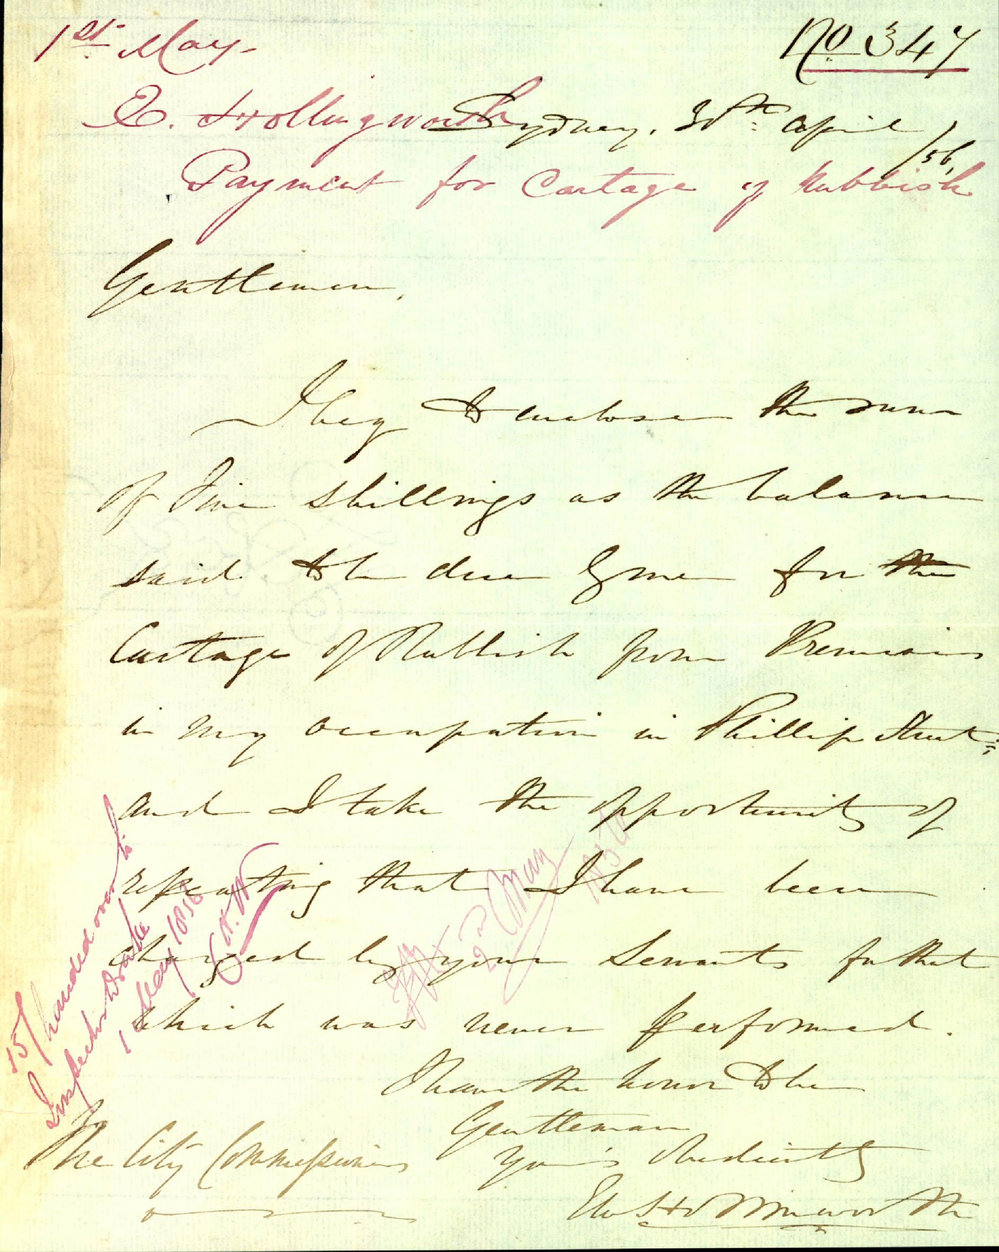 1st May
No 347
E. Hollingworth
Sydney, 30th April /56,
Payment for Cartage of Rubbish
Gentlemen,
I beg to enclose the sum
of Five shillings as the balance
said to be due by me for the
Cartage of Rubbish from Premises
in my occupation in Phillip Street
and I take the opportunity of
repeating that I have been
charged by your Servants for that
which was never performed.
I have the honor to be
Gentlemen
Your's Obediently
Edw Hollingworth
To
The City Commissioners
5/ handed over to
Inspector Drake
1 May 1856
2nd May
1856